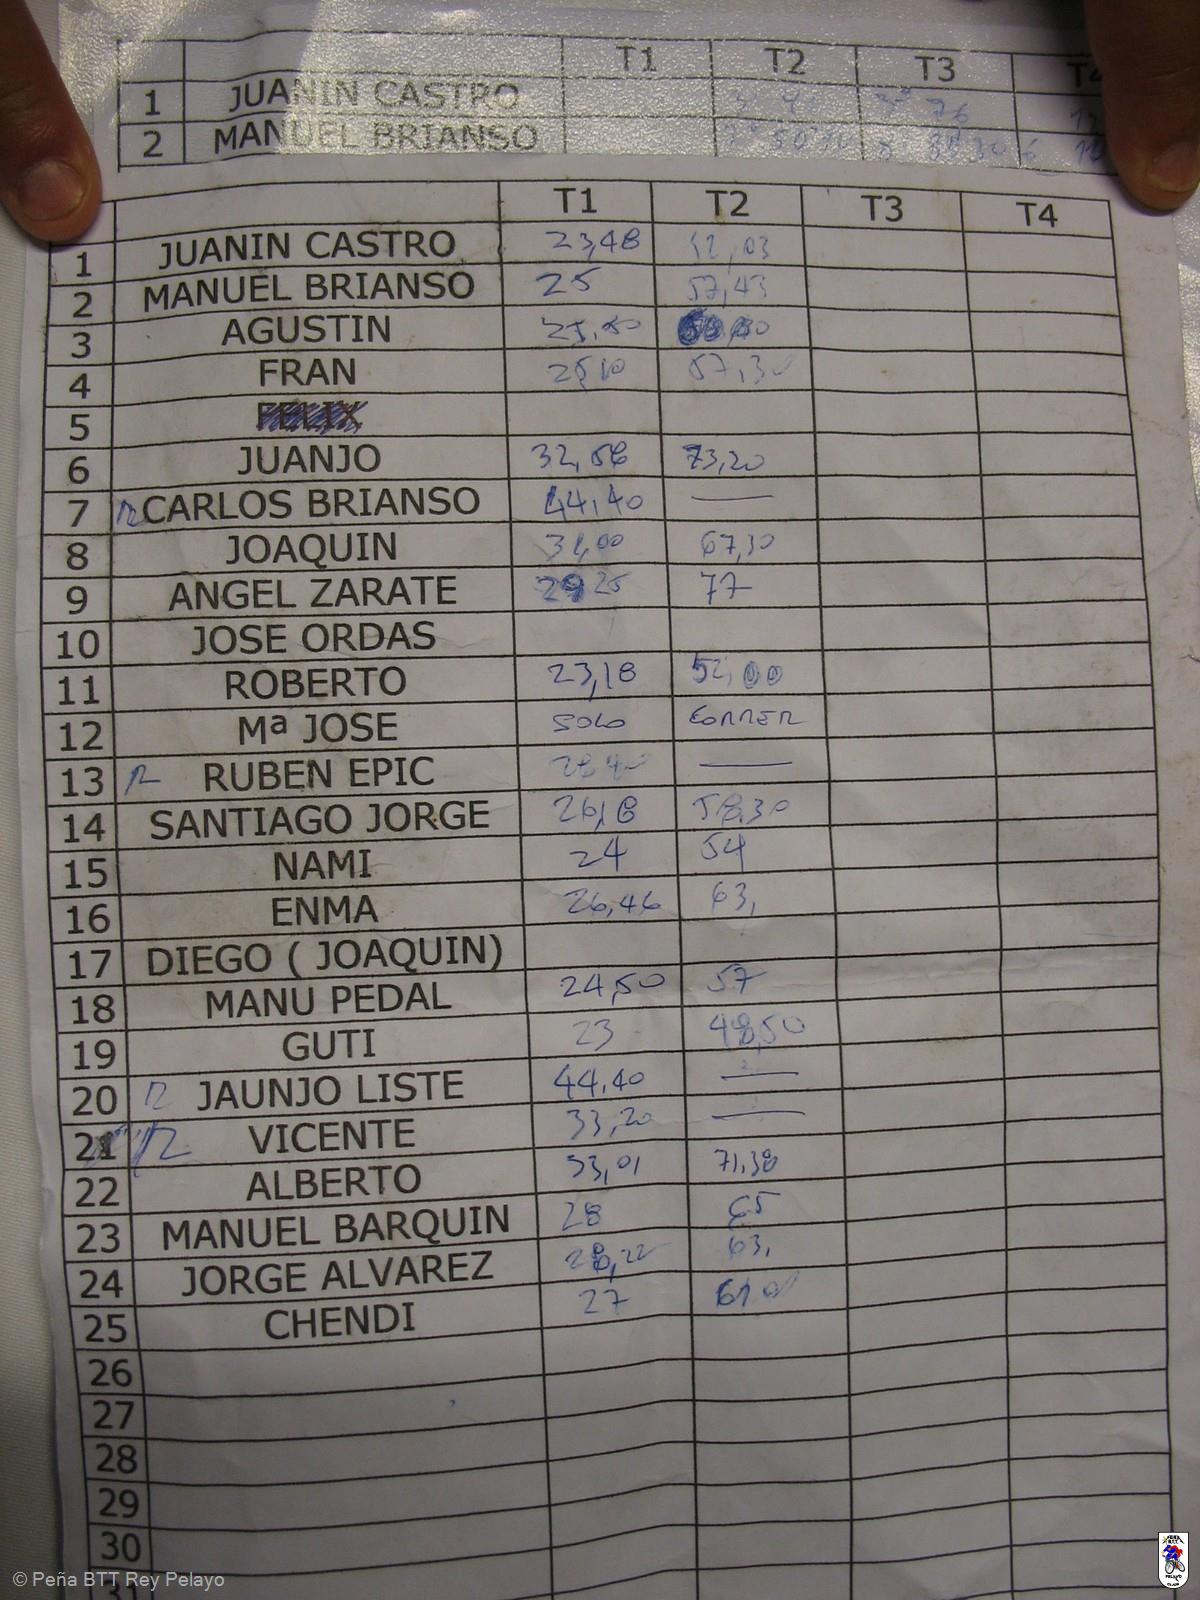 T1 T2 T3
1 JUANIN CASTRO
2 MANUEL BRIANSO
T1 T2 T3 T4
1 JUANIN CASTRO 23,48 52,03
2 MANUEL BRIANSO 25 57,43
3 AGUSTIN
4 FRAN 25,10 57,30
5
6 JUANJO 32,56 73,20
7 CARLOS BRIANSO 44,40 —
8 JOAQUIN 31,00 67,30
9 ANGEL ZARATE 29 25 77
10 JOSE ORDAS
11 ROBERTO 23,18 52,00
12 Mª JOSE SOLO CORRER
13 RUBEN EPIC —
14 SANTIAGO JORGE 26,18 58,30
15 NAMI 24 54
16 ENMA 26,46 63,
17 DIEGO ( JOAQUIN)
18 MANU PEDAL 24,50 57
19 GUTI 23 48,50
20 JAUNJO LISTE 44,40 —
21 VICENTE 33,20 —
22 ALBERTO 33,01 71,38
23 MANUEL BARQUIN 28 65
24 JORGE ALVAREZ 63,
25 CHENDI 27
26
27
28
29
30
31
© Peña BTT Rey Pelayo